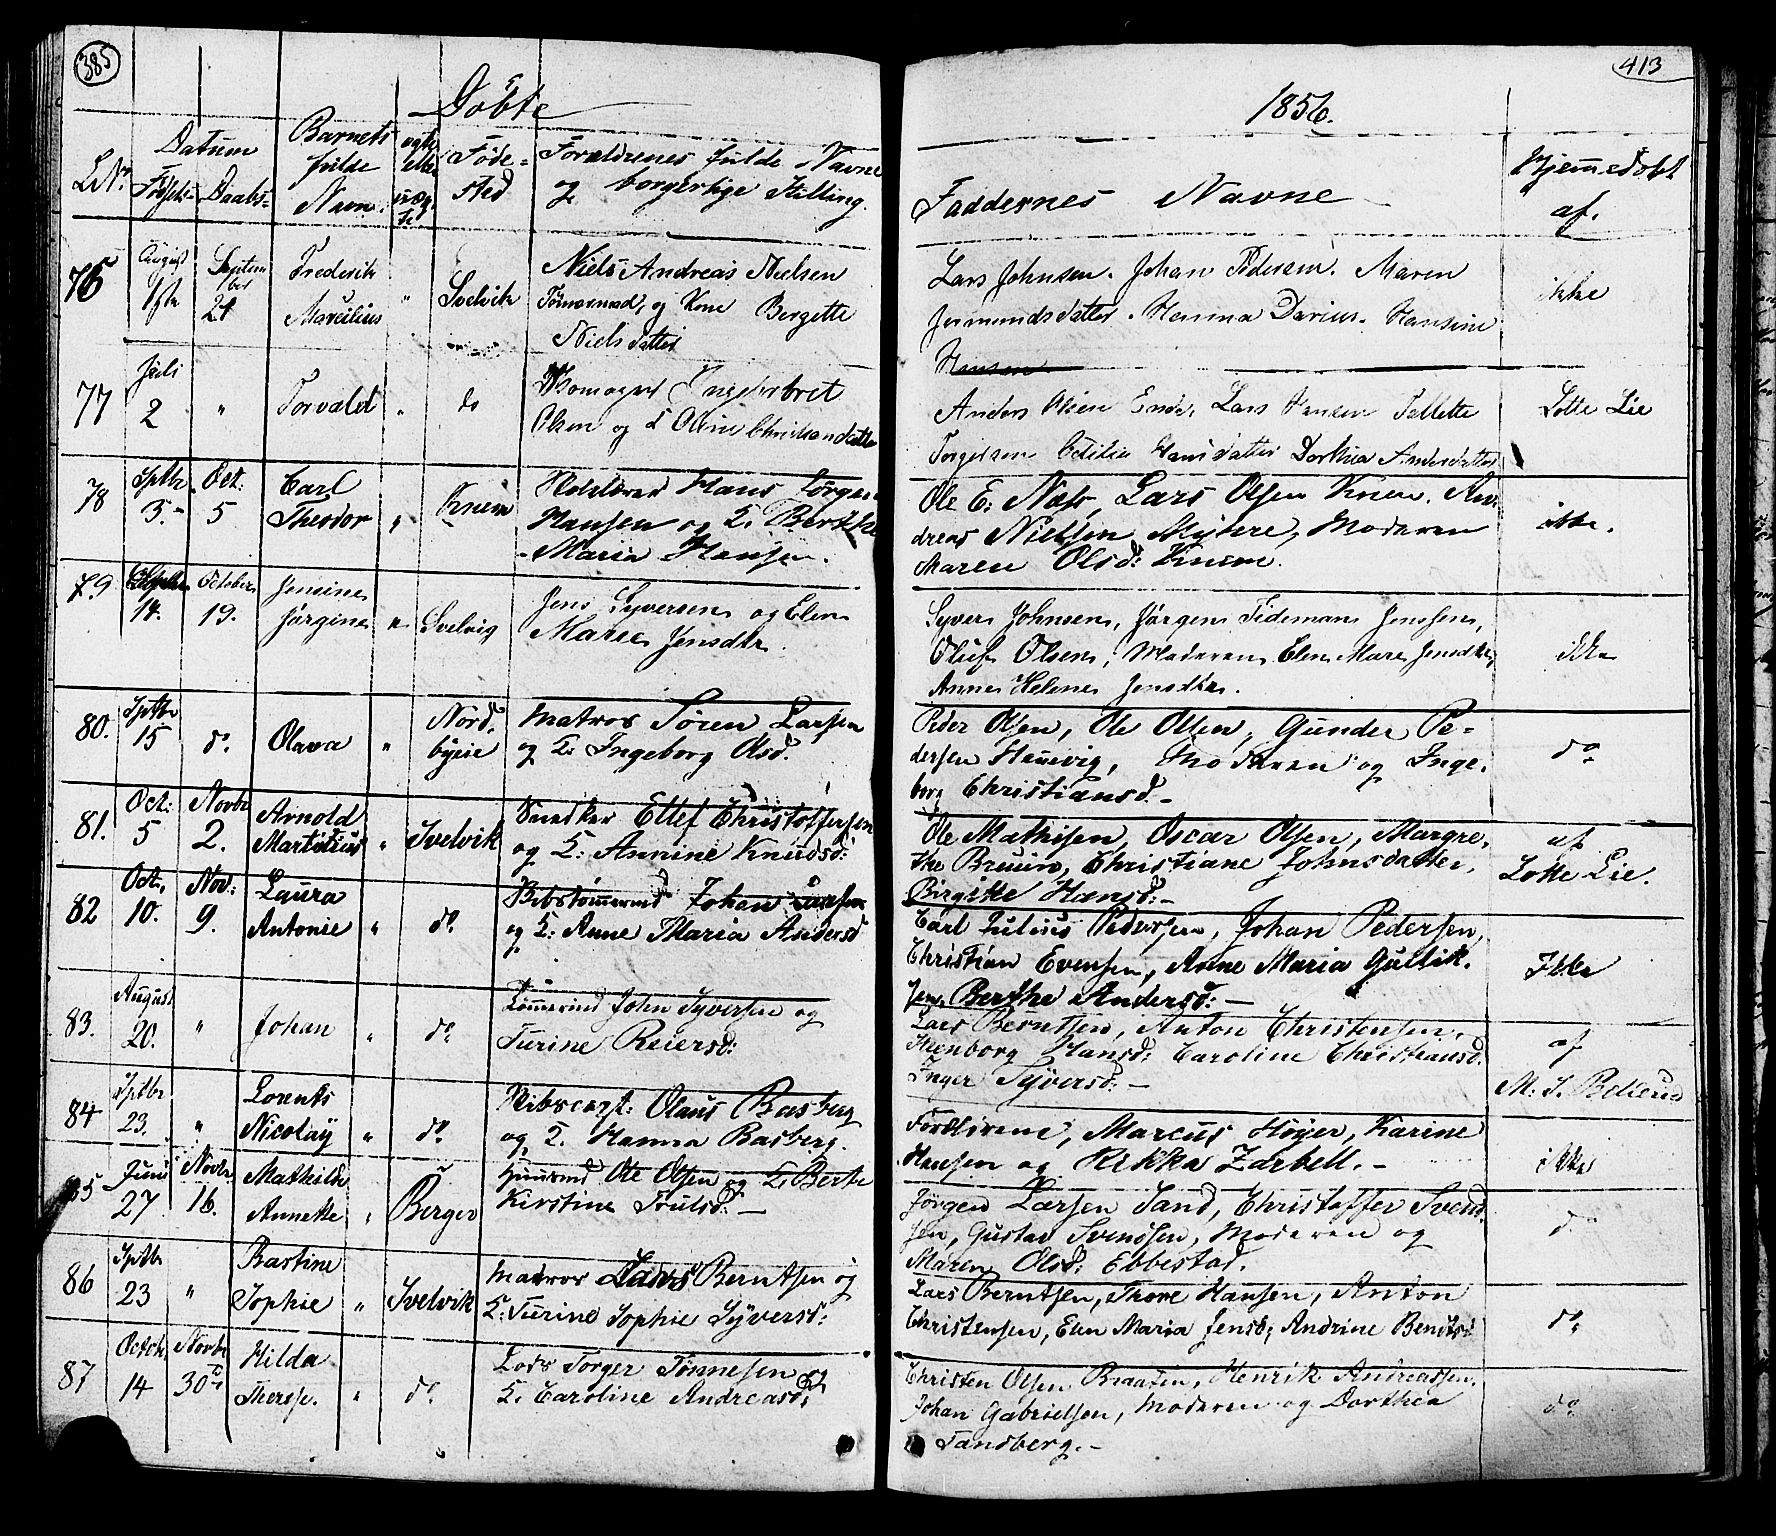 385
Døbte
LNr.
Datum
Fødsels- Daabs-
Barnets
fulde
Navn.
ægte
eller
uæg-
te
Føde-
sted
Forældrenes fulde Navne
og borgerlige Stilling.
76
August
Septem
ber
24
Frederik
Marcilius
"
Svelvik
Niels Andreas Nielsen
Tømmermd, og Kone Bergette
Niels datter
77
Juli
2
"
Torvald
"
do
Engelbret
Olsen og Oline Christiandatter
78
Sptbr
3.
Oct.
5
Carl
Theodor
"
Knem
Hans Jørgen
Hansen og K. Berthe
Maria Hansen.
79
14.
October
19.
Jensine
Jørgine
"
Svelvig
Jens Syversen og Elen
Maree Jensdtr.
80.
Sptbr
15
do.
Olava
"
Nord.
byeie
Matros Søren Larsen
og K. Ingeborg Olsd.
81.
Oct:
5
Novbr
2.
Arnold
Martinius
"
Svelvik
Snedker Ellef Christoffersen
og K: Annine Knudsd:
82
Oct.
10.
Nov:
9.
Laura
Antonie
"
do.
Skibstømmermd Johan Larsen
og K: Anne Maria Andersd
83.
August
20.
"
Johan
"
do.
Tømmermd John Syversen og
Turine Reiersd:
84
Sptbr
23.
"
Lorents
Nicolay
"
do.
Skibscapt: Olaus Basberg
og K. Hanna Basberg.
85
Juni
27
Novbr
16.
Mathilde
Annette
"
Berger
Huusmd Ole Olsen og K. Berte
Kirstine Trulsd: —
86
Sptbr
23
"
Bastine
Sophie
"
Svelvik
Matros Lars Berntsen og
K: Turine Sophie Syversd:
87
Octob.
14
Novbr
30te
Hilda
Therese.
"
do.
Lods Torger Tønnesen og
K. Caroline Andreasd:
413
1856.
Faddernes Navne
Hjemmedøbt
af.
Lars Johnsen. Johan Pedersen. Maren
Jermundsdatter. Hanna Darius. Hansine
Hansen
ikke
Anders Olsen Ende, Lars Hansen Pellette
Torgersen Cecilia Hansdatter Dorthea Andersdatter
Lotte Lie
Ole E: Næss, Lars Olsen Knem. An-
dreas Nielsen Myhre, Moderen
Maren Olsd: Knem.
ikke.
Syver Johnsen, Jørgen Tideman Jensen,
Oluf Olsen, Moderen Elen Maree Jensdtr,
Anne Helene Jensdtr.
ikke
Peder Olsen, Ole Olsen, Gunder Pe-
dersen Heuevig, Moderen og Inge-
borg Christiansd. -
do.
Ole Mathisen, Oscar Olsen, Margre-
the Bruun, Christiane Johnsdatter,
Birgitte Hansd: -
af
Lotte Lie.
Carl Julius Pedersen, Johan Pedersen,
Christian Evensen, Anne Maria Gullik-
sen, Berthe Andersd: —
Ikke
Lars Berntsen, Anton Christensen,
Thenborg Hansd: Caroline Christiansd.
Inger Syversd: —
af
M. S. Bellerud
Forældrene, Marcus Høyer, Karine
Hansen og Rikka Zarbell. -
ikke
Jørgen Larsen Sand, Christoffer Svend-
sen, Gustav Svendsen, Moderen og
Maren Olsd: Ebbestad.
do
Lars Berntsen, Thore Hansen, Anton
Christensen, Elen Maria Jensd; Andrine Berntsd
do.
Christen Olsen Braaten, Henrik Andreassen,
Johan Gabrielsen, Moderen og Dorthea
Tandberg. -
do.